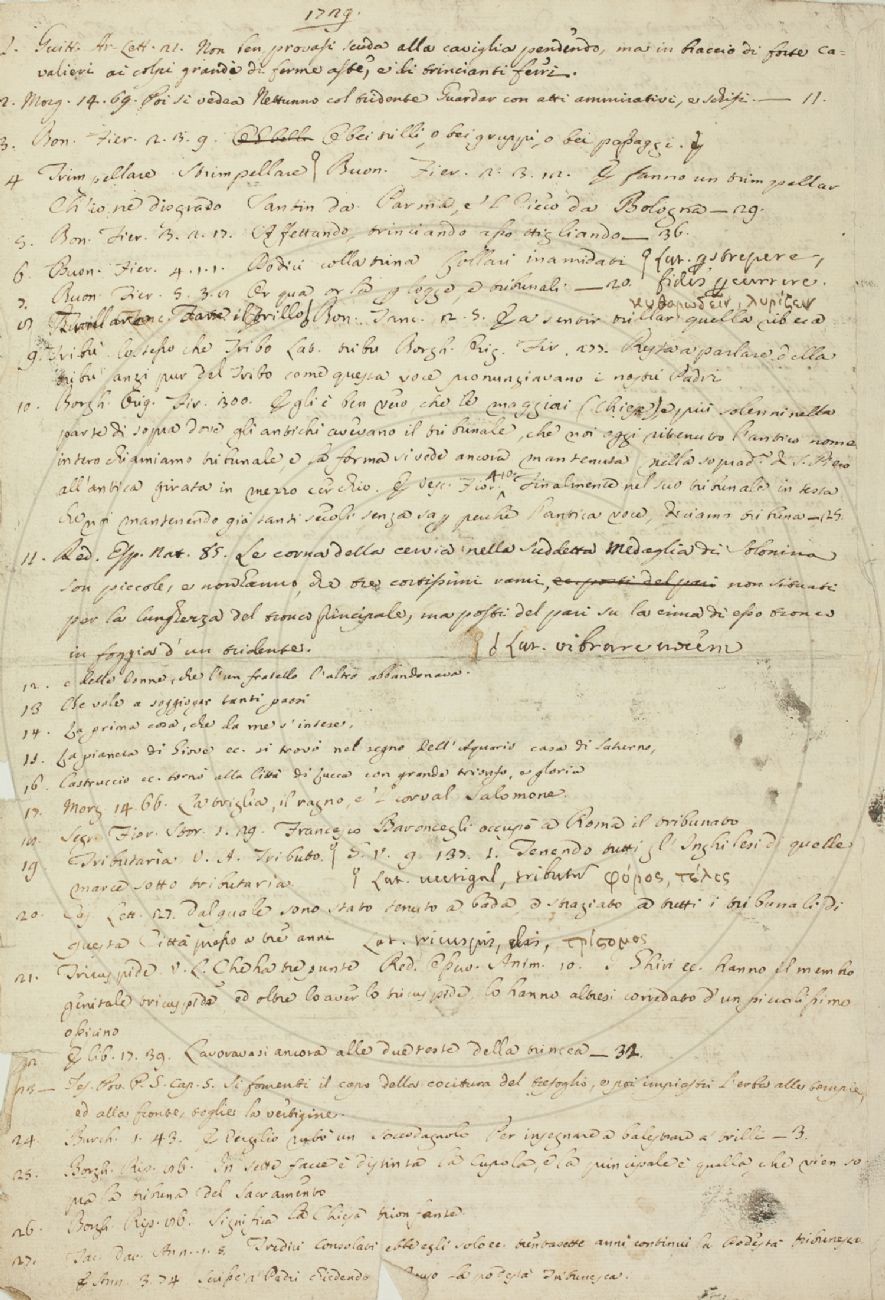 1729.
1. Guitt. Ar. Lett. 21. Non ben provasi scuda alla caviglia pendendo, ma in braccio di forte ca=
valieri ai colpi grandi di ferme aste, e di trincianti ferri.
2. Morg. 14. 69. Poi si vedea Nettunno col tridente Guardar con atti ammirativi, e schifi. — 11.
3. Bon. Fier. 2. 3. 9. E bei trilli, o bei gruppi, o bei passaggi.
4 Trimpellare Strimpellare Buon. Fier. 2. 3. 12. E fanno un trimpellar
Ch'io ne disgrado Santin da Parma, e 'l Pieco da Bologna — 29.
5. Bon. Fier. 3. 2. 17. Affettando, trinciando assottigliando — 36.
6. Buon. Fier. 4. 1. 1. collarina Collari inamidati Lat. perstrepere,
7. Buon. Fier. 5. 3. Or qua or là per logge, e tribunali — 20. fides percurrere.
κυθαρωδεῖν, λυρίζειν
8 Bon. Tanc. 12. 5. E a sentir trillar quella ribeca
9. Tribù Lo stesso che Tribo Lat. tribus Borgh. Orig. Fir. 277. Resta a parlare della
tribù anzi pur del Tribo come questa voce pronunziavano i nostri Padri
10. Borgh. Orig. Fir. 300. Egli è ben vero che le maggiori (Chiese) e più solenni nella
parte di sopra dove gli antichi avevano il tribunale, che noi oggi ritenuto l'antico nome
intero chiamiamo tribunale e la forma si vede ancora mantenuta nella sopradª. di S. Piero
all'antica girata in mezzo cerchio. E Vesc. Fior. 410. Finalmente nel suo tribunale in testa
che noi mantenendo già tanti secoli senza saper perchè l'antica voce, diciamo tribuna — 25.
11. Red. Esp. Nat. 85. Le corna della cervia nella suddetta medaglia di Solonina
son piccole, e non hanno, che tre cortissimi rami, non situati
per la lunghezza del tronco principale, ma posti del pari su la cima di esso tronco
in foggia d'un tridente. Lat. vibrare vocem
12. e delle Donne, che l'un fratello l'altro abbandonava.
13 Che vale a soggiogar tanti paesi
14. La prima cosa, che da me s'intese,
15. La pianeta di Giove ec. si trovò nel segno dell'Aquario casa di Saturno,
16. Castruccio ec. tornò alla Città di Lucca con grande trionfo, e gloria
17. Morg. 14. 66. La triglia, il ragno, e 'l corval Salomone.
18. Segr. Fior. Stor. 1. 29. Francesco Baroncegli occupò a Roma il tribunato
19 Tributaria V. A. Tributo. G. V. 9. 137. 1. Tenendo tutti gl'Inghilesi di quelle
marce sotto tributaria. Lat. vectigal, tributum φόρος, τέλες
20. Cas. Lett. 27. dal quale sono stato tenuto a bada e straziato a tutti i tribunali di
questa Città presso a tre anni Lat. tricuspis, idis, τρίςομος
21. Tricuspide. V. L. Che ha tre punte Red. Osserv. Anim. 10. I Ghiri ec. hanno il membro
genitale tricuspide ed oltre lo aver lo tricuspide lo hanno altresi corredato d'un piccolissimo
ossicino
22. E lib. 17. 39. Lavoravasi ancora alle due teste della trincea — 31.
23 — Tes. Pov. P. S. Cap. 5. Si fomenti il capo della cocitura del trefoglio, e poi impiastri l'erba alle tempie,
ed alla fronte, toglie la vertigine.
24. Burch. 1. 43. E Vergilio trovò un Per insegnare a balestrare a' trilli — 3.
25. Borgh. Rip. In sette facce è distinta la Cupola, e la principale è quella, che vien so
pra la tribuna del Sacramento
26. Borgh. Rip. Significa la Chiesa trionfante.
27. Tac. Dav. Ann. 1. 8. Tredici Consolati ebb'egli solo ec. trentasette anni continui la Podestà tribunesca.
E Ann. 3. 74 Scrisse a' Padri chiedendo la podestà Tribunesca.